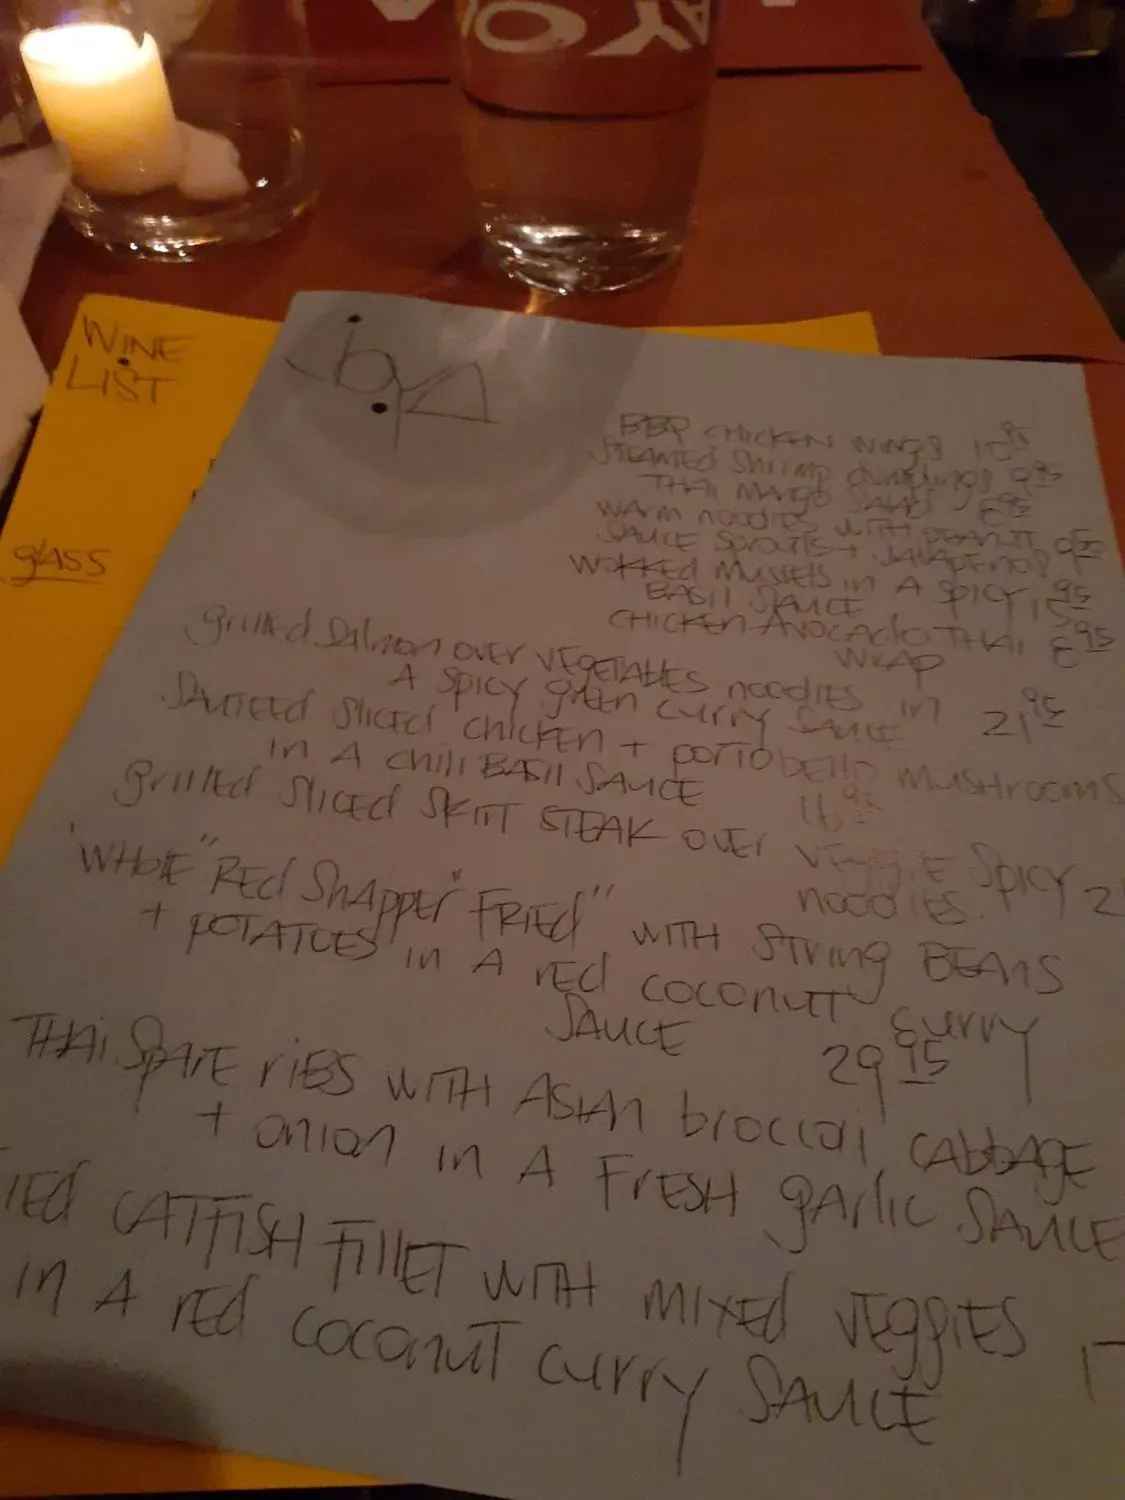 WINE
LIST
glass
ibyA
BBQ CHICKEN WINGS 10 95
STEAMED Shrimp dumplings 9 95
THAI MANGO SALAD 8 95
WARM noodles WITH PEANUT
SAUCE Sprouts + JALAPENOS 9 95
WOKKED MUSSELS in A SPICY
BASIl SAUCE 15 95
CHICKEN AVOCAdo THAI 8 95
WRAP
grilled SAlmon OVER VEGETABLES noodles in
A SPICY green CURRY SAUCE 21 95
SAUTEED SlICED CHICKEN + portobello MUSHROOMS
in A CHili BASIl SAUCE 16 95
grilled SlICED SKIRT STEAK OVER VEGGIE SPICY
noodlES. 2
"WHOlE" REd SnAppEr "FRIEd" WITH STring BEANS
+ POTATOES in A rEd COCONUT CURRY
SAUCE 29 95
THAi SpArE riBS WITH ASIAN broccoli, CAbbAgE
+ onion in A FrESH gArlic SAUCE
IEd CATFISH FillET WITH mixed VEggIES
in A rEd COCOnuT curry SAUCE 1